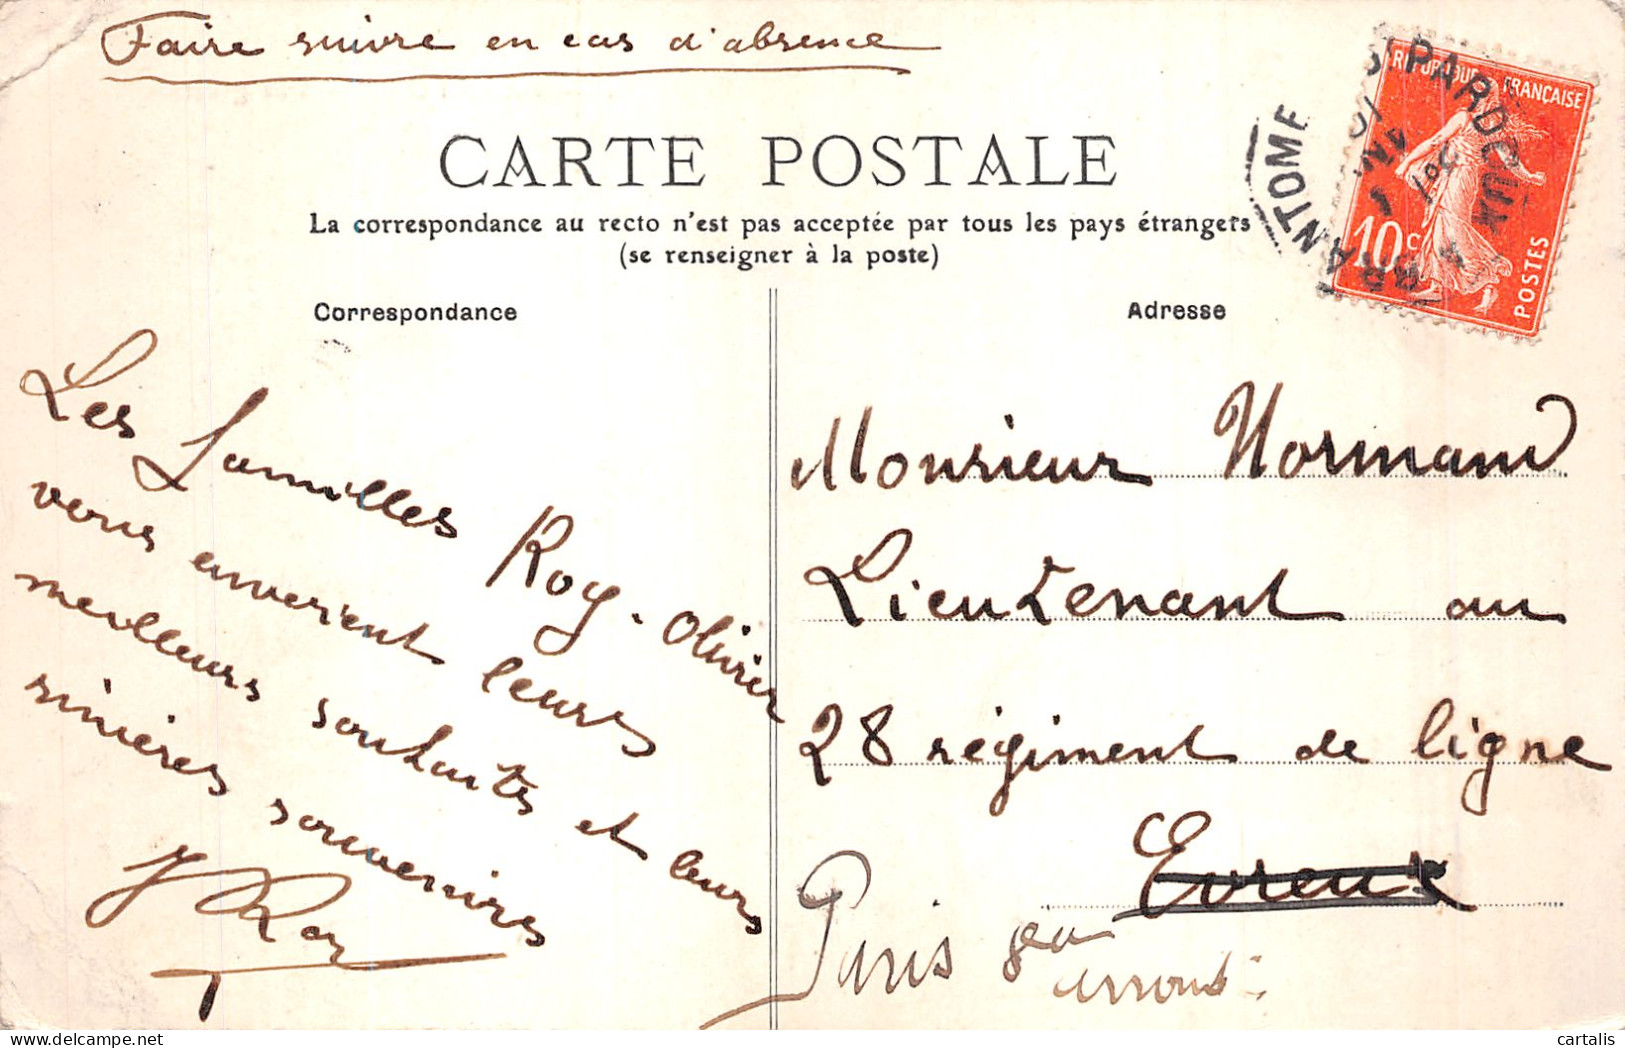 Faire suivre en cas d'absence
CARTE POSTALE
La correspondance au recto n'est pas acceptée par tous les pays étrangers
(se renseigner à la poste)
Correspondance
Adresse
REPUBLIQUE FRANÇAISE
10c
POSTES
BRANTOME
ST PARDOUX
Les familles Roy-Olivier
vous envoient leurs
meilleurs souhaits et leurs
sincères souvenirs
Roy
Monsieur Normand
Lieutenant au
28 régiment de ligne
Evreux
Paris
arrond:
cartalis